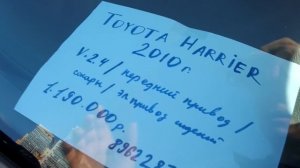 TOYOTA HARRIER
2010г.
V-2.4 / передний привод /
сонары / эл.привод сидений
1.190.000р.
8962